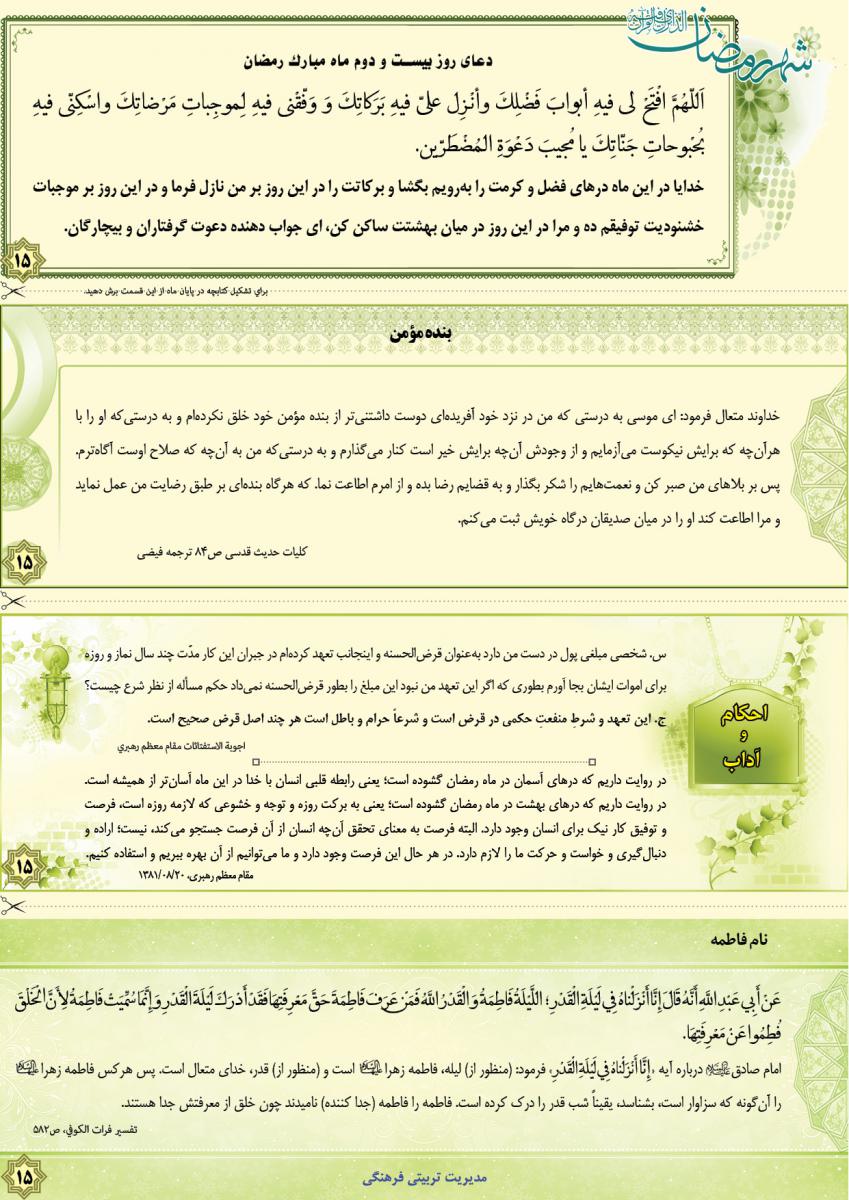 شهر رمضان
الذی انزل فیه القرآن
دعای روز بیست و دوم ماه مبارك رمضان
اَللّهُمَّ افْتَحْ لی فیهِ أبوابَ فَضْلِكَ وأنْزِل علیّ فیهِ بَرَكاتِكَ وَ وَفّقْنی فیهِ لِموجِباتِ مَرْضاتِكَ واسْكِنّی فیهِ
بُحْبوحاتِ جَنّاتِكَ یا مُجیبَ دَعْوَةِ المُضْطَرّین.
خدایا در این ماه درهای فضل و کرمت را به‌رویم بگشا و برکاتت را در این روز بر من نازل فرما و در این روز بر موجبات
خشنودیت توفیقم ده و مرا در این روز در میان بهشتت ساکن کن، ای جواب دهنده دعوت گرفتاران و بیچارگان.
۱۵
برای تشکیل کتابچه در پایان ماه از این قسمت برش دهید.
بنده مؤمن
خداوند متعال فرمود: ای موسی به درستی که من در نزد خود آفریده‌ای دوست داشتنی‌تر از بنده مؤمن خود خلق نکرده‌ام و به درستی‌که او را با
هرآن‌چه که برایش نیکوست می‌آزمایم و از وجودش آن‌چه برایش خیر است کنار می‌گذارم و به درستی‌که من به آن‌چه که صلاح اوست آگاه‌ترم.
پس بر بلاهای من صبر کن و نعمت‌هایم را شکر بگذار و به قضایم رضا بده و از امرم اطاعت نما. که هرگاه بنده‌ای بر طبق رضایت من عمل نماید
و مرا اطاعت کند او را در میان صدیقان درگاه خویش ثبت می‌کنم.
کلیات حدیث قدسی ص۸۴ ترجمه فیضی
۱۵
احکام
و
آداب
س. شخصی مبلغی پول در دست من دارد به‌عنوان قرض‌الحسنه و اینجانب تعهد کرده‌ام در جبران این کار مدّت چند سال نماز و روزه
برای اموات ایشان بجا آورم بطوری که اگر این تعهد من نبود این مبلغ را بطور قرض‌الحسنه نمی‌داد حکم مسأله از نظر شرع چیست؟
ج. این تعهد و شرطِ منفعتِ حکمی در قرض است و شرعاً حرام و باطل است هر چند اصل قرض صحیح است.
اجوبة الاستفتائات مقام معظم رهبری
در روایت داریم که درهای آسمان در ماه رمضان گشوده است؛ یعنی رابطه قلبی انسان با خدا در این ماه آسان‌تر از همیشه است.
در روایت داریم که درهای بهشت در ماه رمضان گشوده است؛ یعنی به برکت روزه و توجه و خشوعی که لازمه روزه است، فرصت
و توفیق کار نیک برای انسان وجود دارد. البته فرصت به معنای تحقق آن‌چه انسان از آن فرصت جستجو می‌کند، نیست؛ اراده و
دنبال‌گیری و خواست و حرکت ما را لازم دارد. در هر حال این فرصت وجود دارد و ما می‌توانیم از آن بهره ببریم و استفاده کنیم.
مقام معظم رهبری، ۱۳۸۱/۰۸/۲۰
۱۵
نام فاطمه
عَنْ أَبِي عَبْدِ اللَّهِ أَنَّهُ قَالَ إِنَّا أَنْزَلْنَاهُ فِي لَيْلَةِ الْقَدْرِ؛ اللَّيْلَةُ فَاطِمَةُ وَ الْقَدْرُ اللَّهُ فَمَنْ عَرَفَ فَاطِمَةَ حَقَّ مَعْرِفَتِهَا فَقَدْ أَدْرَكَ لَيْلَةَ الْقَدْرِ وَ إِنَّمَا سُمِّيَتْ فَاطِمَةُ لِأَنَّ الْخَلْقَ
فُطِمُوا عَنْ مَعْرِفَتِهَا.
امام صادق علیه‌السلام درباره آیه «إِنَّا أَنْزَلْنَاهُ فِي لَيْلَةِ الْقَدْرِ» فرمود: (منظور از) لیله، فاطمه زهرا علیهاالسلام است و (منظور از) قدر، خدای متعال است. پس هرکس فاطمه زهرا علیهاالسلام
را آن‌گونه که سزاوار است، بشناسد، یقیناً شب قدر را درک کرده است. فاطمه را فاطمه (جدا کننده) نامیدند چون خلق از معرفتش جدا هستند.
تفسیر فرات الکوفي، ص۵۸۲
۱۵
مدیریت تربیتی فرهنگی